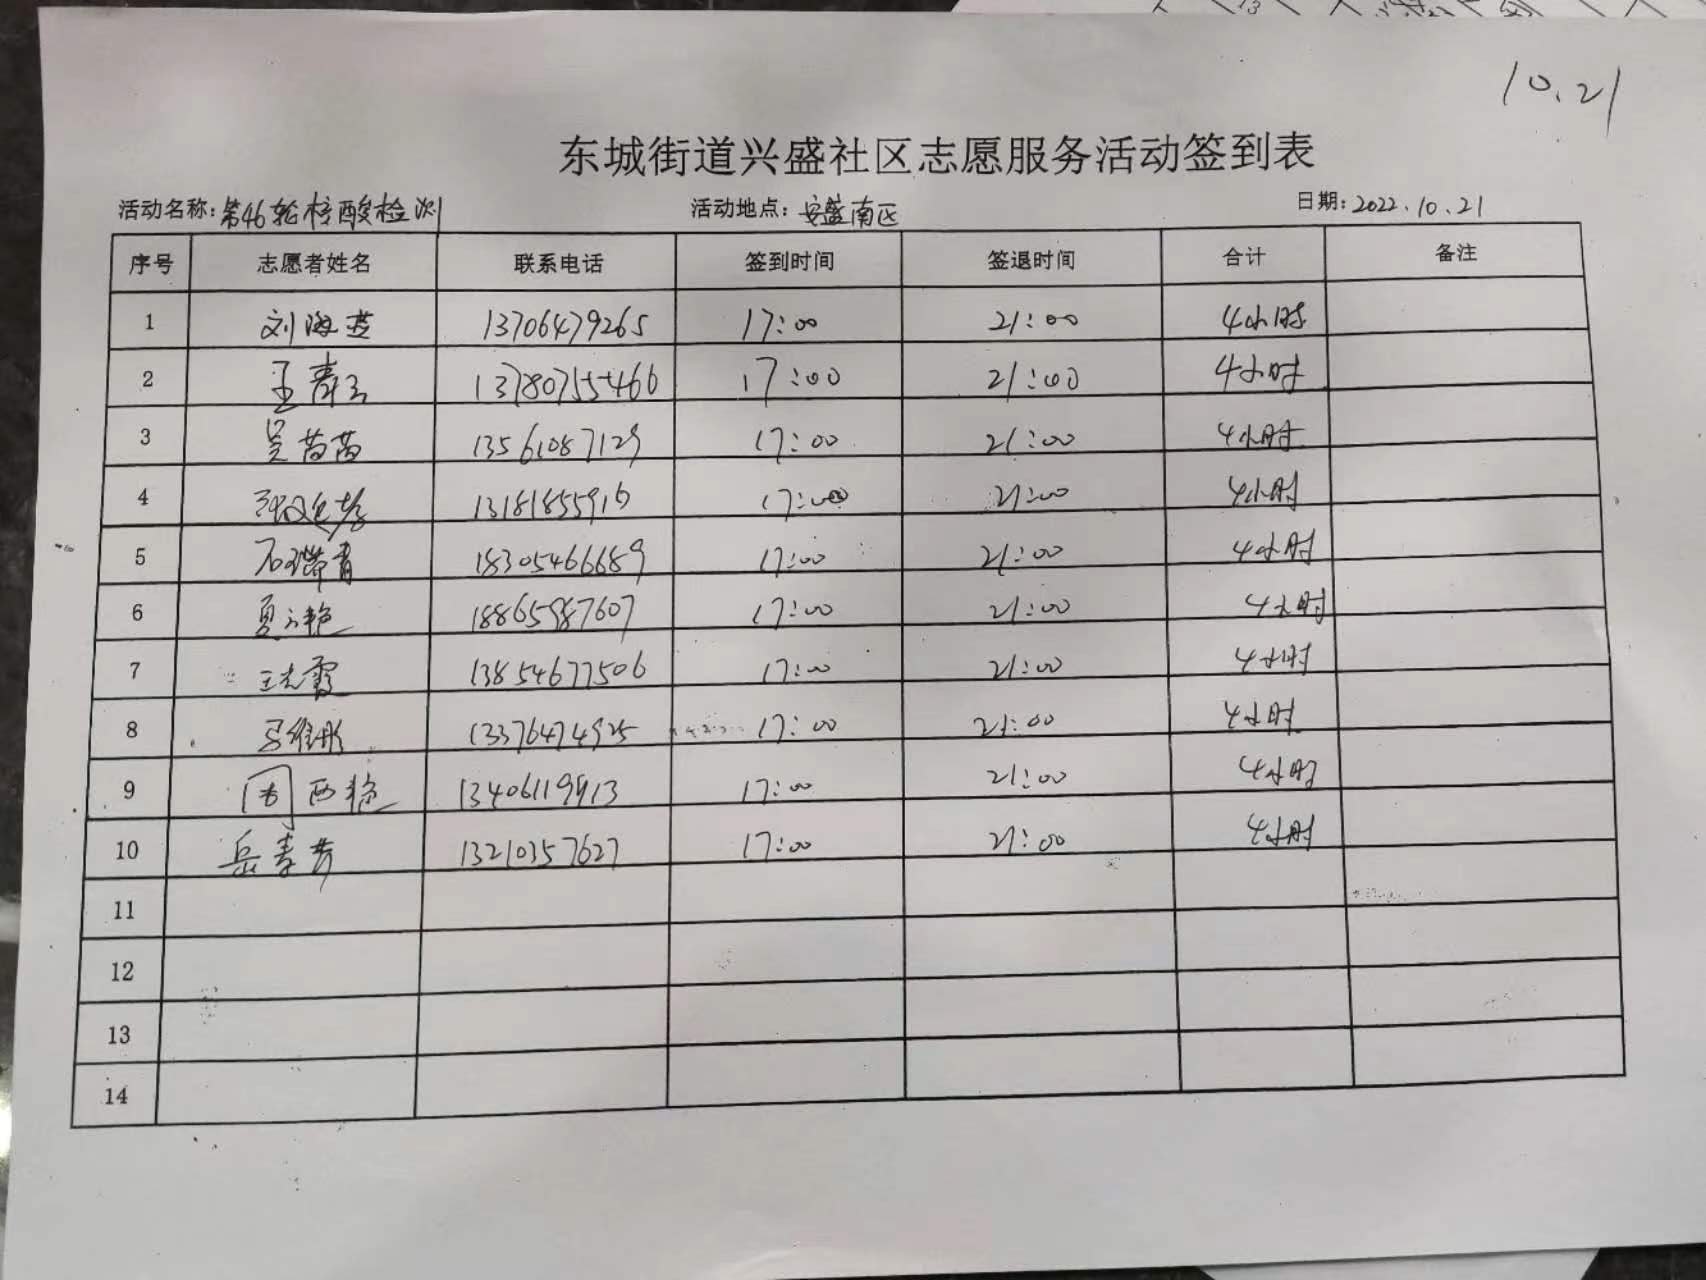 10.21
东城街道兴盛社区志愿服务活动签到表
活动名称:第46轮核酸检测 活动地点:安盛南区 日期:2022.10.21
序号 志愿者姓名 联系电话 签到时间 签退时间 合计 备注
1 刘海燕 13706479265 17:00 21:00 4小时
2 王青云 13780755466 17:00 21:00 4小时
3 吴茜茜 13561087129 17:00 21:00 4小时
4 13181855916 17:00 21:00 4小时
5 石瑞青 18305466689 17:00 21:00 4小时
6 夏 艳 18865987607 17:00 21:00 4小时
7 王志霞 13854677506 17:00 21:00 4小时
8 马维彤 13376474925 17:00 21:00 4小时
9 西艳 13406119913 17:00 21:00 4小时
10 岳春芳 13210357627 17:00 21:00 4小时
11
12
13
14